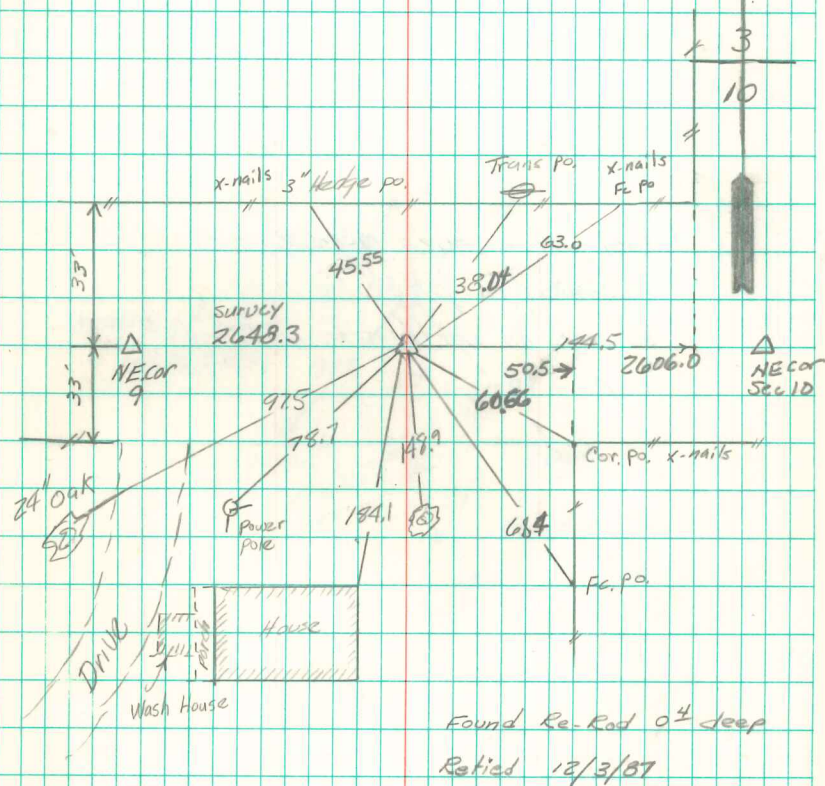 3
10
x-nails 3" Hedge po.
Trans po.
x-nails
Fc Po
33'
45.55
38.04
63.0
survey
2648.3
144.5
NE.cor
9
50.5
2606.0
NE cor
Sec 10
33'
97.5
78.7
148.9
60.66
Cor. po. x-nails
24" Oak
Power
pole
184.1
68.4
Fc. po.
House
Porch
Drive
Wash House
Found Re-Rod 0.4 deep
Retied 12/3/87